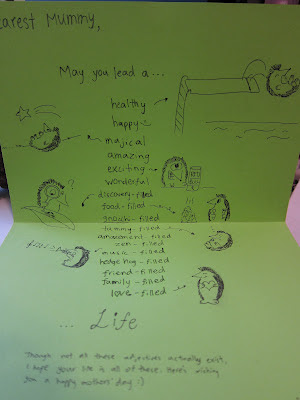 earest Mummy,
May you lead a...
healthy
happy
magical
amazing
exciting
wonderful
discovery-filled
food-filled
-filled
yummy-filled
amazement-filled
-filled
music-filled
hedgehog-filled
friend-filled
family-filled
love-filled
... Life
Though not all these adjectives actually exist,
I hope your life is all of these. Here's wishing
you a happy mothers' day :)